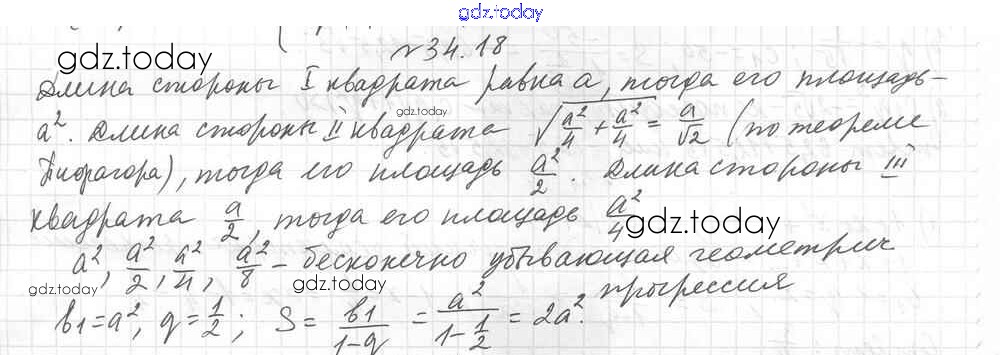 gdz.today
№34.18
gdz.today
Длина стороны I квадрата равна a, тогда его площадь -
gdz.today
a². Длина стороны II квадрата √(a²/4 + a²/4) = a/√2 (по теореме
Пифагора), тогда его площадь a²/2. Длина стороны III
квадрата a/2, тогда его площадь a²/4
gdz.today
a², a²/2, a²/4, a²/8 - бесконечно убывающая геометрич
gdz.today
прогрессия
b₁=a², q=1/2; S = b₁/(1-q) = a²/(1-1/2) = 2a².